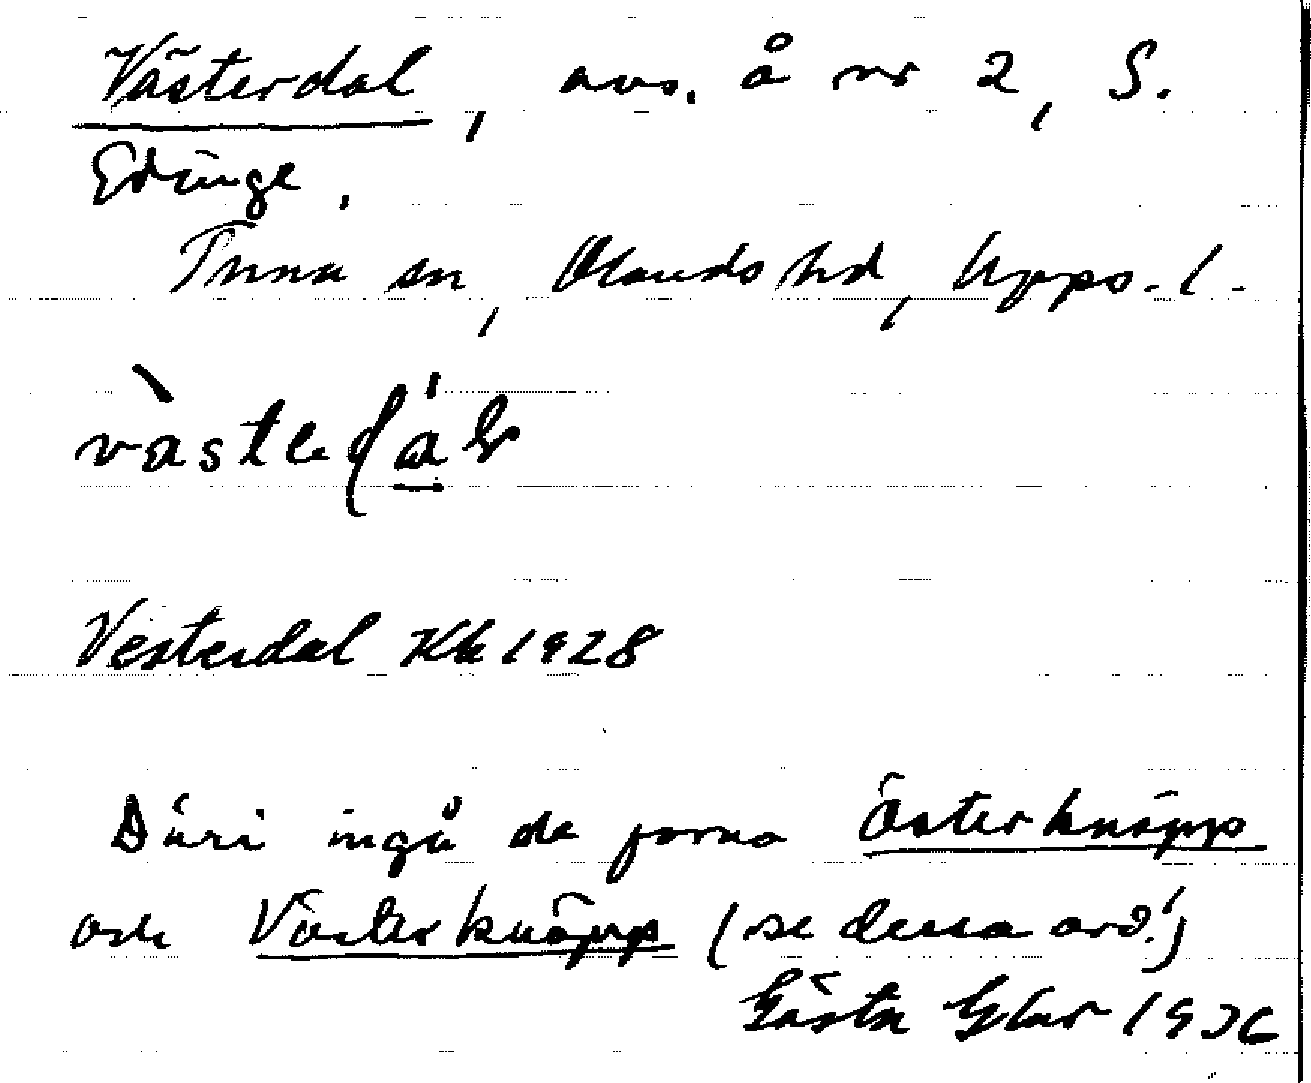 Västerdal, avs. å nr 2, S.
Edinge.
Tuna sn, Olands hd, Upps. l.
Vesterdal Kk 1928
Däri ingå de forna Österknäpp
och Västerknäpp (se dessa ord!)
Gösta 1936